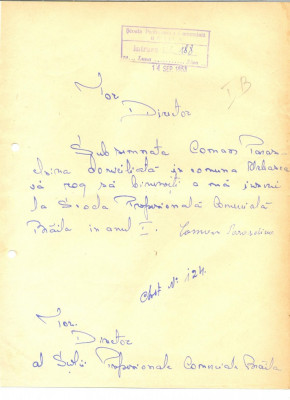 Școala Profesională Comercială
183
14 SEP 1953
I B
Tov.
Director
Subsemnata Coman Paras-
chiva domiciliată în comuna
vă rog să binevoiți a mă înscrie
la Școala Profesională Comercială
Brăila în anul I. Coman Paraschiva
Chit No 124.
Tov.
Director
al Școlii Profesionale Comerciale Brăila